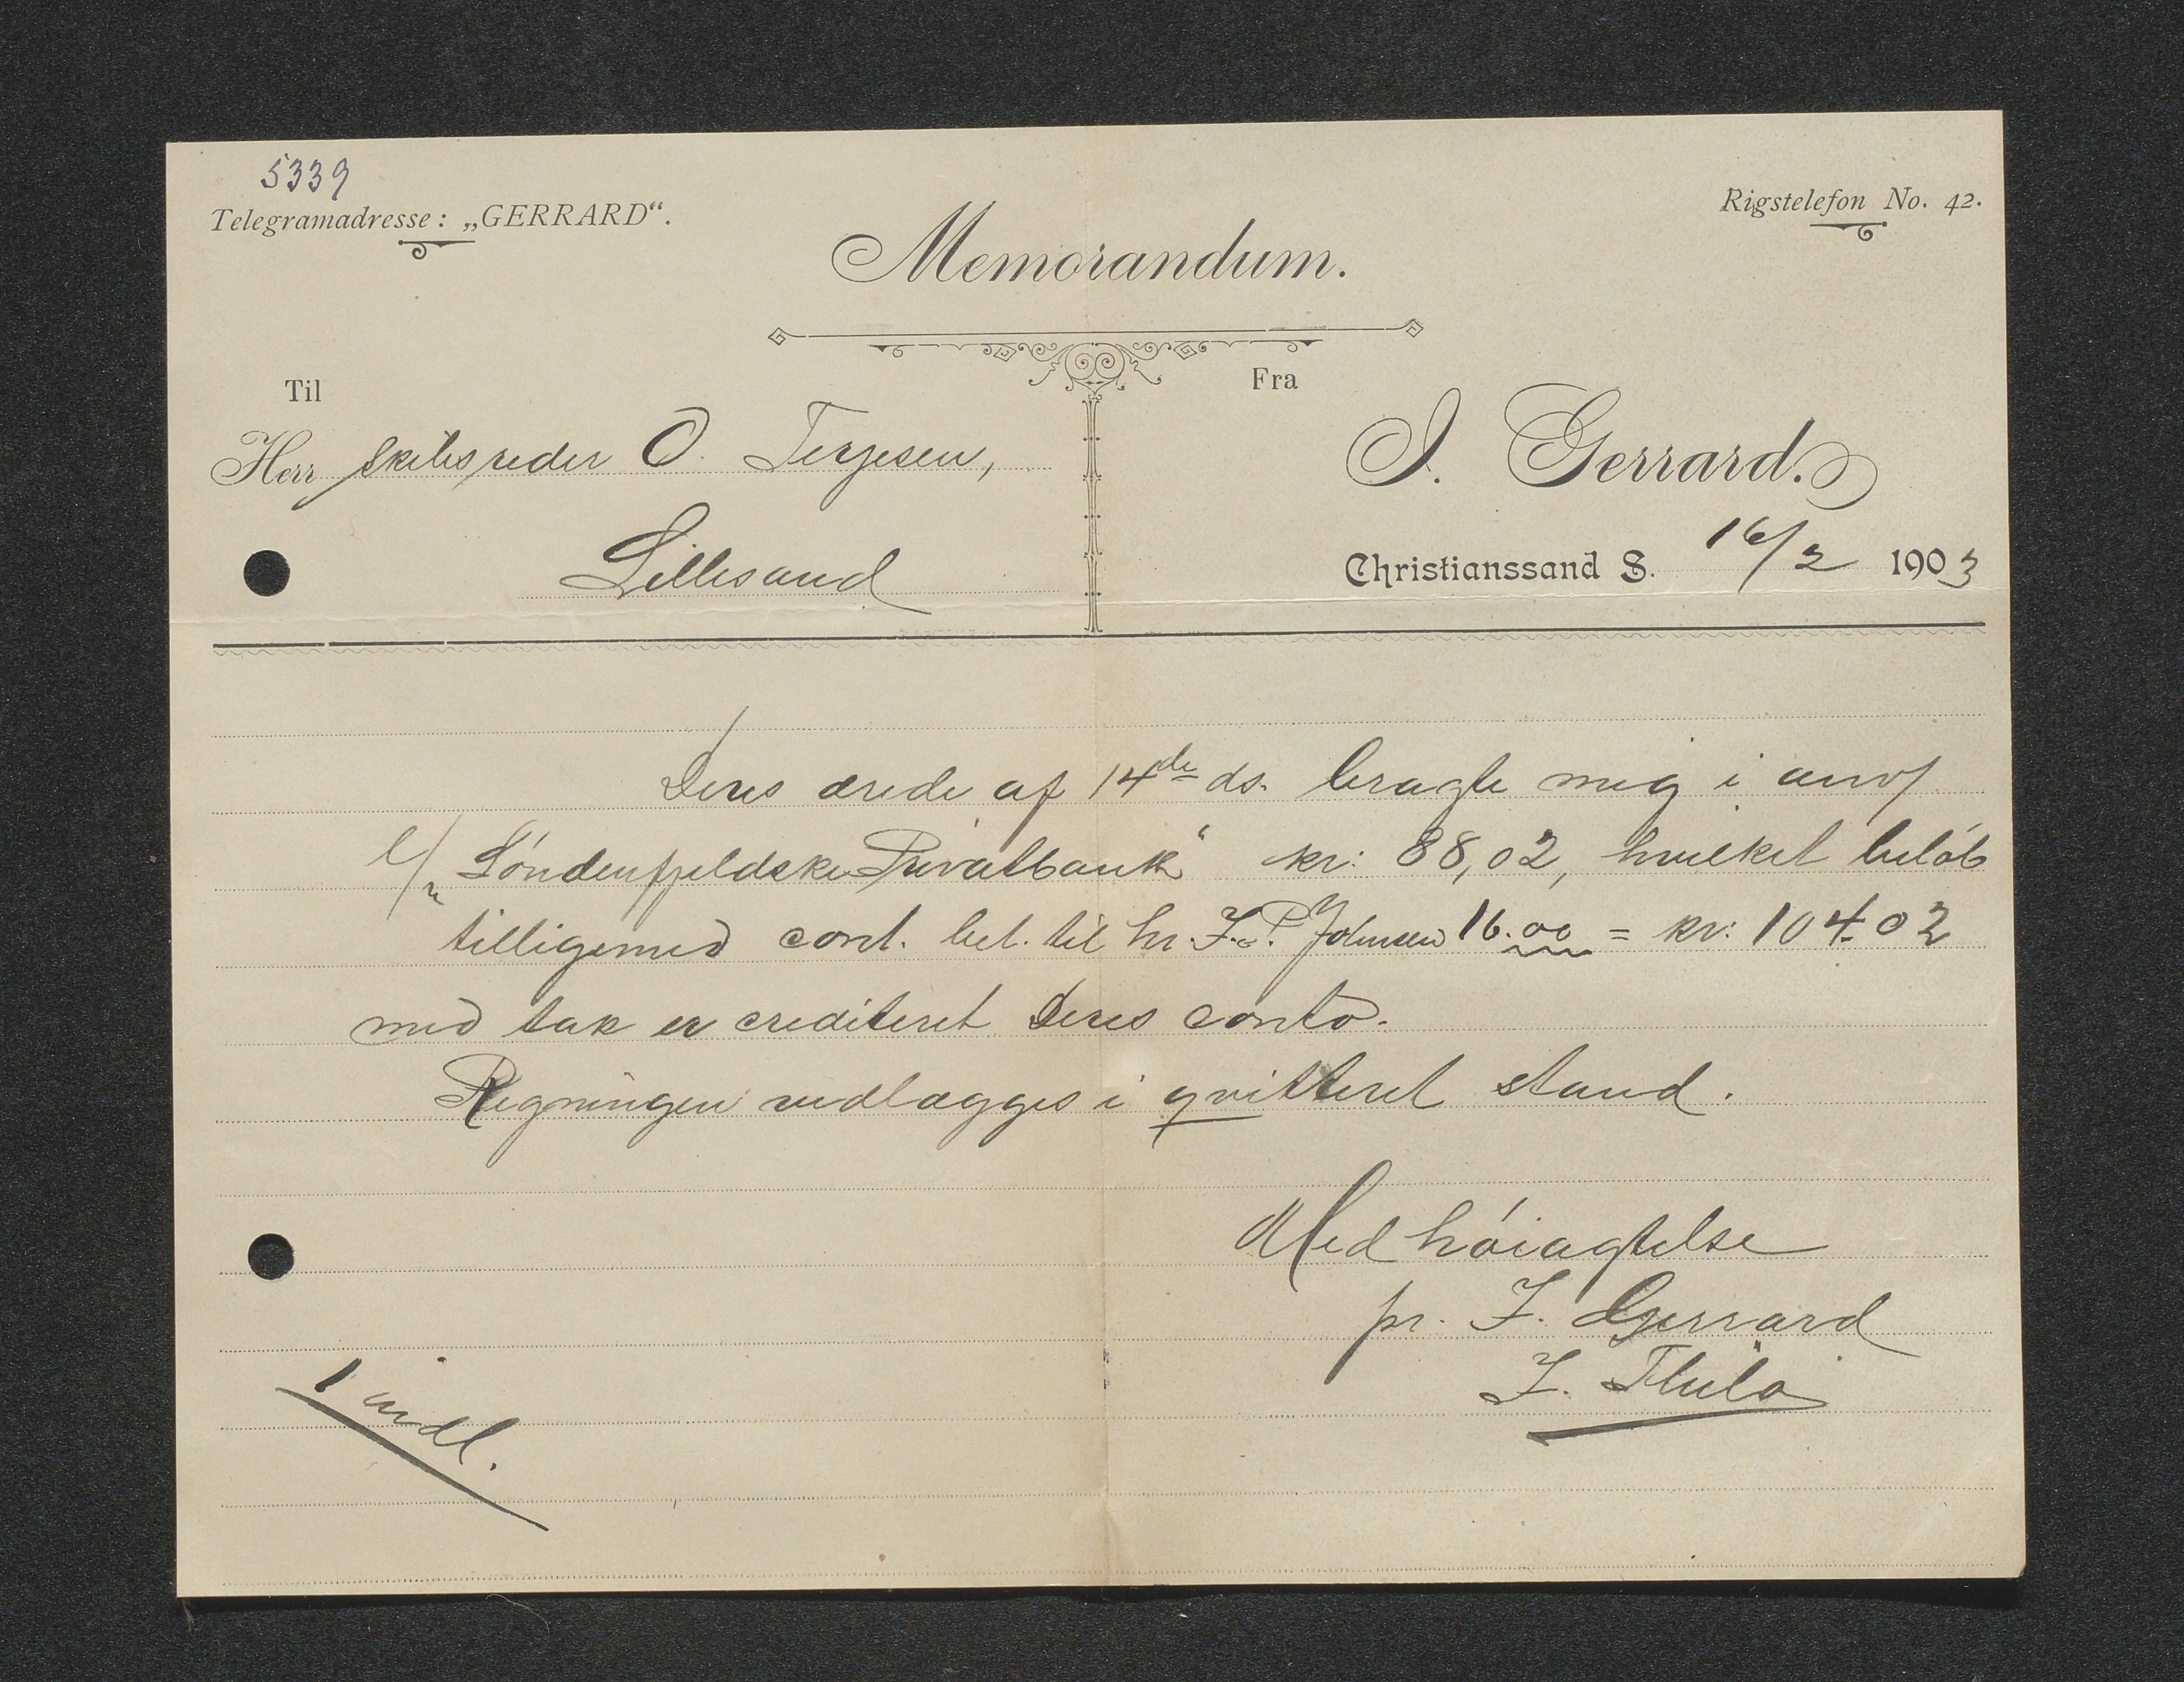 5339
Telegramadresse: „GERRARD“.
Rigstelefon No. 42.
Memorandum.
Til
Herr skibsreder O. Terjesen,
Lillesand
Fra
I. Gerrard.
Christianssand S. 16/2 1903
Deres ærede af 14de ds. bragte mig i anv/
„Søndenfjeldske Privatbank“ kr: 88,02, hvilket beløb
tilligemed cont. bet. til hr. J. P. Johnsen 16.00 = kr: 104.02
med tak er crediteret Deres conto.
Regningen vedlægges i qvitteret stand.
Med høiagtelse
pr. I. Gerrard
I. Thilo
1 indl.